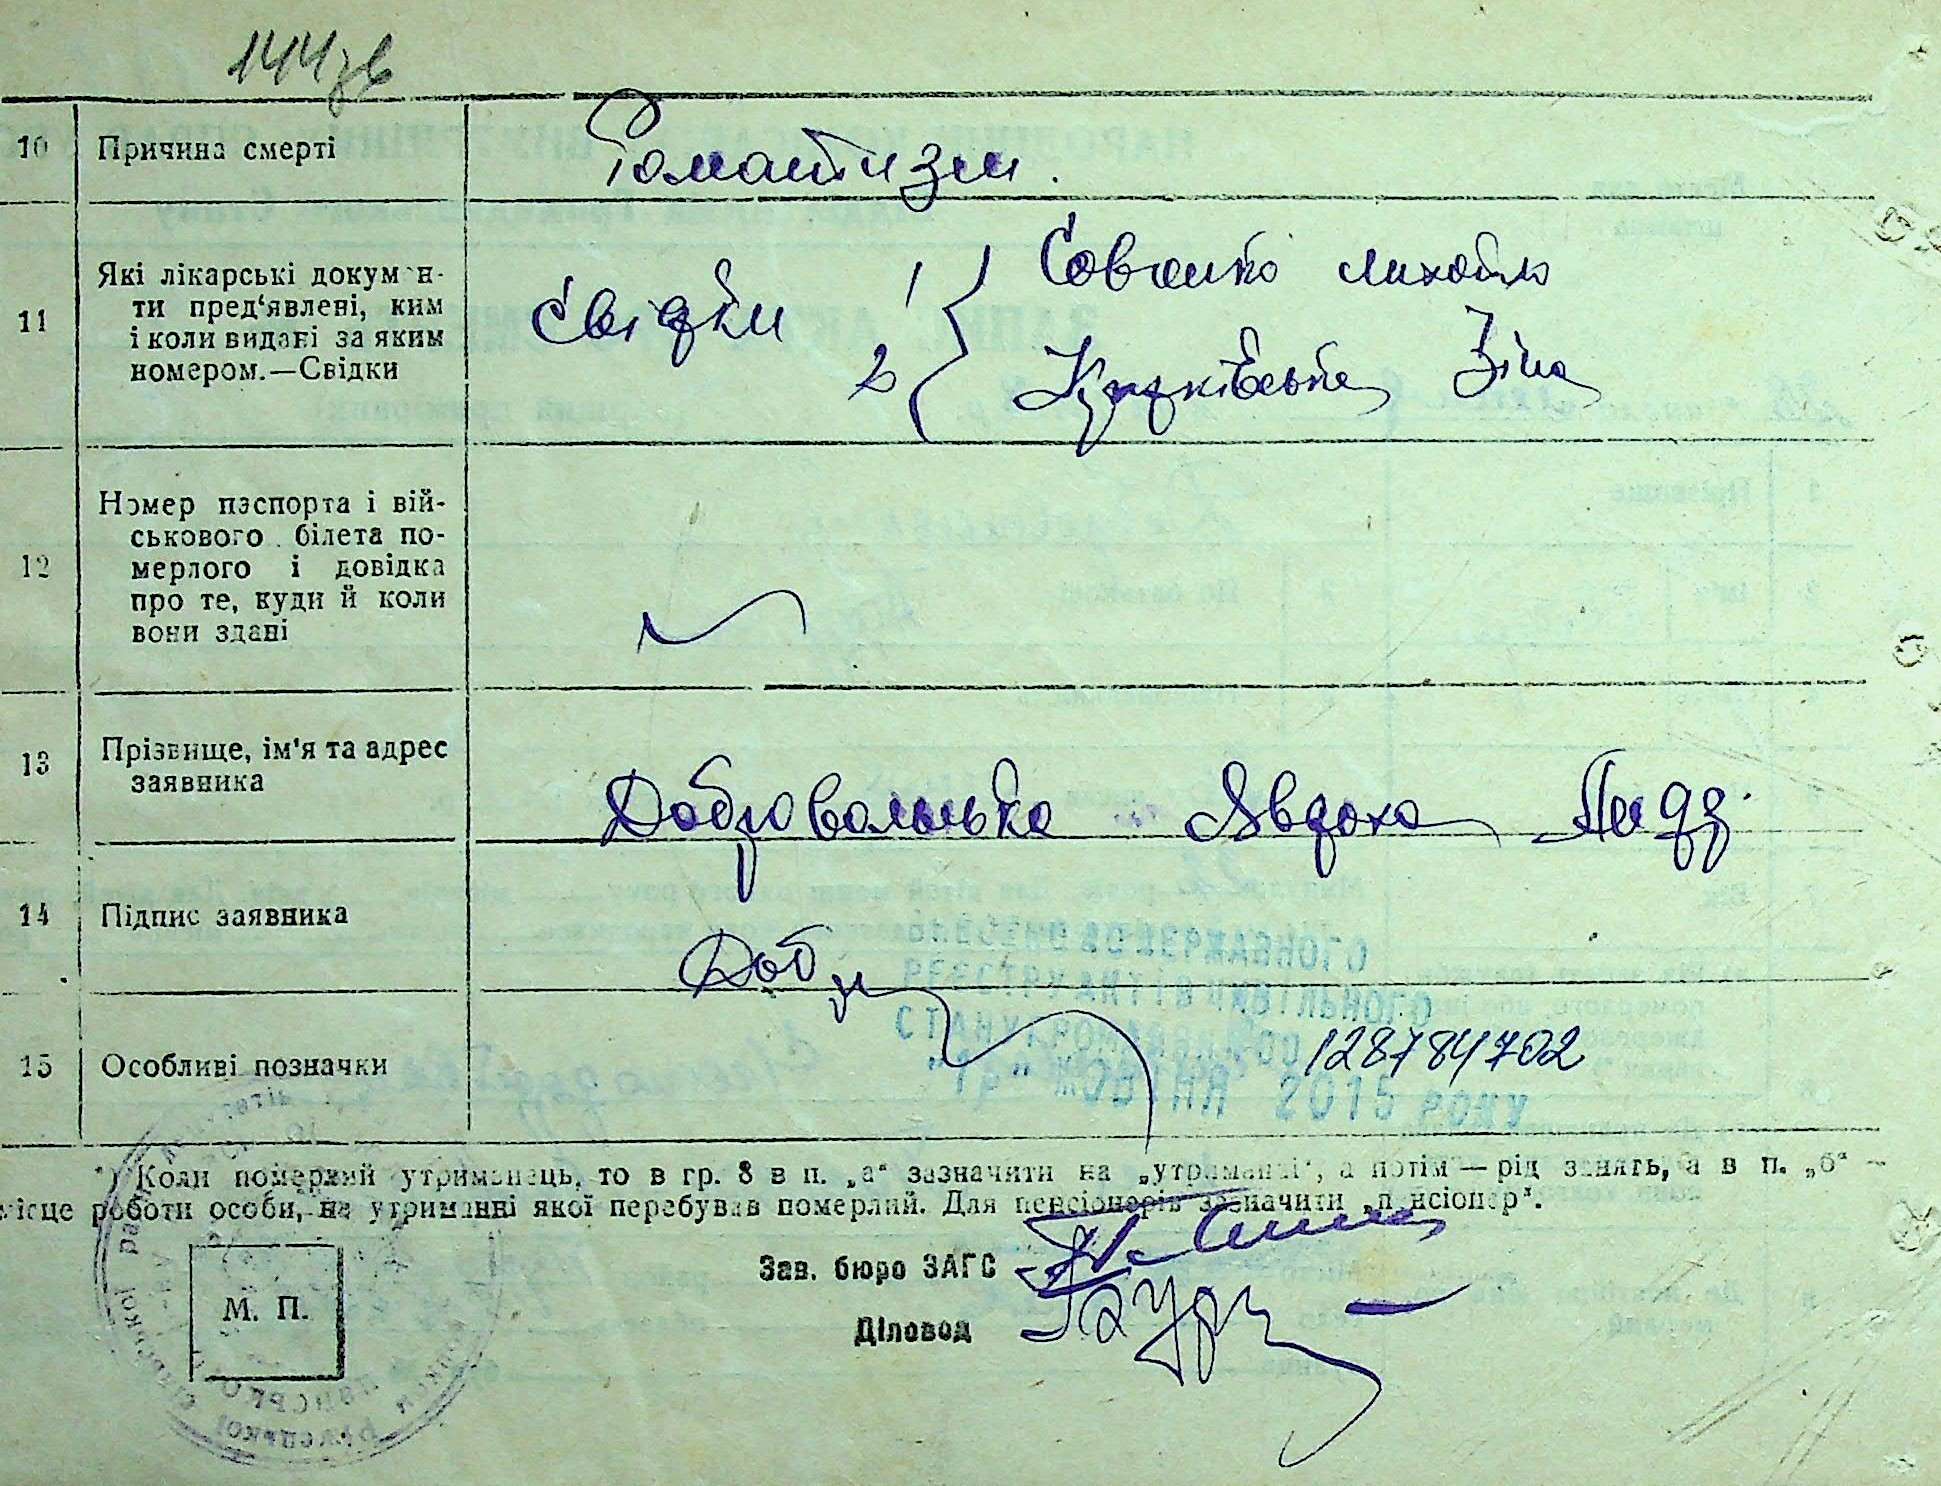 144зв
10 Причина смерті Роматизм.
11 Які лікарські докумен-
ти пред‘явлені, ким
і коли видані за яким
номером.—Свідки
Свідки 1 михайло
2 Зіна
12 Номер паспорта і вій-
ськового білета по-
мерлого і довідка
про те, куди й коли
вони здані
13 Прізвище, ім'я та адрес
заявника
Добровольська Явдоха
14 Підпис заявника
Добр
ВНЕСЕНО ДО ДЕРЖАВНОГО
РЕЄСТРУ АКТІВ ЦИВІЛЬНОГО
СТАНУ ГРОМАДЯН 128784702
ЖОВТНЯ 2015 РОКУ
15 Особливі позначки
*) Коли померлий утриманець, то в гр. 8 в п. „а“ зазначити на „утриманні“, а потім — рід занять, а в п. „б“ —
місце роботи особи, на утриманні якої перебував померлий. Для пенсіонерів зазначити „пенсіонер“.
Зав. бюро ЗАГС
М. П.
Діловод